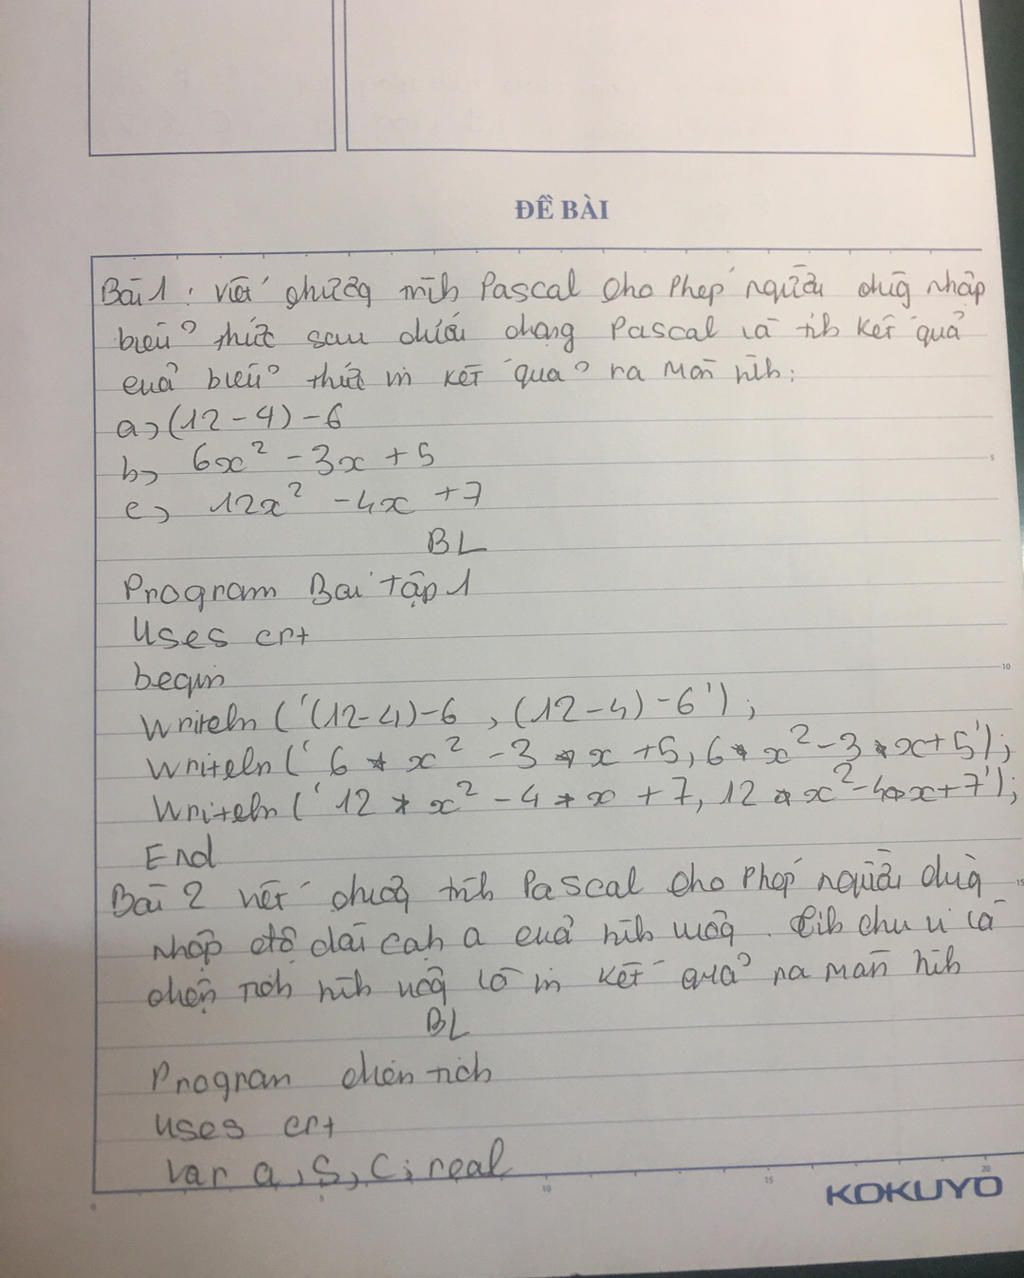 ĐỀ BÀI
Bài 1: viết chương trình Pascal cho phép người dùng nhập
biểu thức sau dưới dạng Pascal và tính kết quả
của biểu thức in kết quả ra màn hình:
a, (12-4)-6
b, 6x² - 3x + 5
c, 12x² - 4x + 7
BL
Program Bai tập 1
Uses crt
begin
Writeln ('(12-4)-6 , (12-4)-6');
Writeln (' 6 * x² - 3 * x + 5, 6 * x² - 3 * x + 5');
Writeln (' 12 * x² - 4 * x + 7, 12 * x² - 4 * x + 7');
End
Bài 2 viết chương trình Pascal cho phép người dùng
nhập độ dài cạnh a của hình vuông. tính chu vi và
diện tích hình vuông và in kết quả ra màn hình
BL
Program diện tích
Uses crt
var a, S, C: real
5
10
15
0
5
10
15
20
KOKUYO